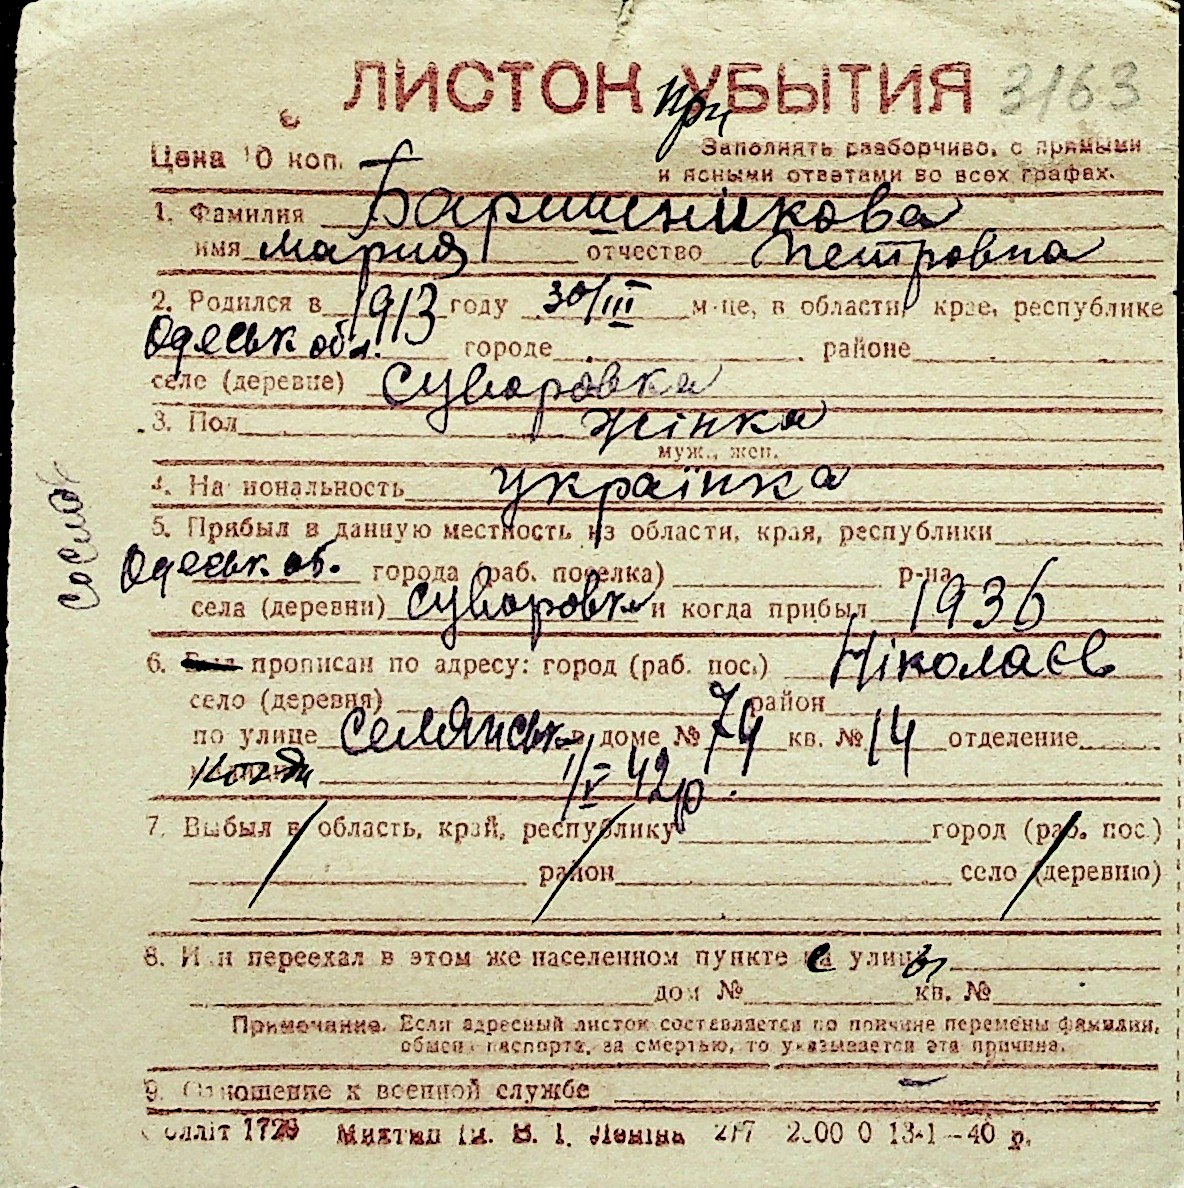 ЛИСТОК УБЫТИЯ 3163
при
Цена 10 коп.
Заполнять разборчиво, с прямыми
и ясными ответами во всех графах.
1. Фамилия Баришнікова
имя Мария отчество Петровна
2. Родился в 1913 году 30/III м-це, в области, крае, республике
Одеськ обл. городе районе
селе (деревне) Суворовка
3. Пол жінка
муж., жен.
4. Национальность українка
5. Прибыл в данную местность из области, края, республики
Одеськ. об. города (раб. поселка) р-на
села (деревни) Суворовка и когда прибыл 1936
6. Был прописан по адресу: город (раб. пос.) Ніколаєв
село (деревня) район
по улице Селянськ в доме № 74 кв. № 14 отделение
1/V 42р.
7. Выбыл в область, край, республику город (раб. пос.)
район село (деревню)
8. Или переехал в этом же населенном пункте с улицы
дом № кв. №
Примечание. Если адресный листок составляется по причине перемены фамилии,
обмена паспорта, за смертью, то указывается эта причина.
9. Отношение к военной службе —
блліт 1729 Миктип ім. В. І. Леніна 217 13-1-40 р.